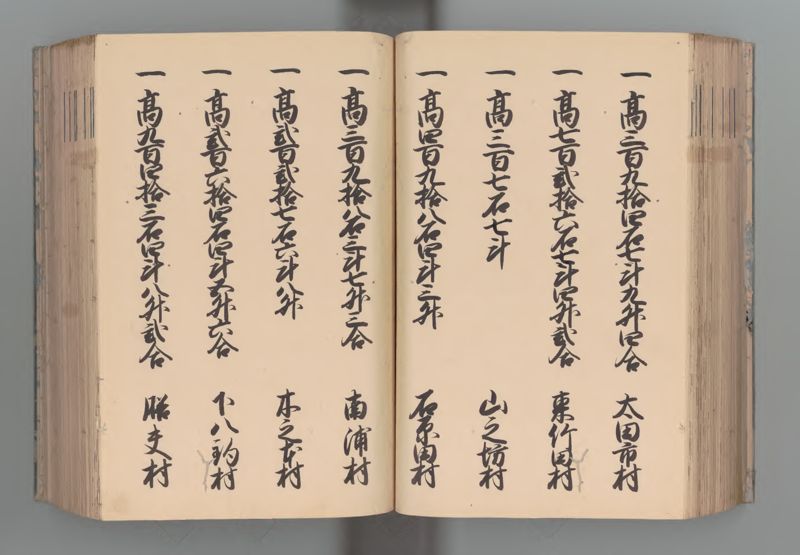 一 高三百九拾四石七斗九升四合 太田市村
一 高七百弐拾六石七斗四升弐合 東竹田村
一 高三百七石七斗 山之坊村
一 高四百九拾八石四斗三升 石原田村
一 高三百九拾八石三斗七升三合 南浦村
一 高弐百弐拾七石六斗八升 木之本村
一 高弐百六拾四石四斗五升六合 下八釣村
一 高九百四拾三石四斗八升弐合 膳夫村